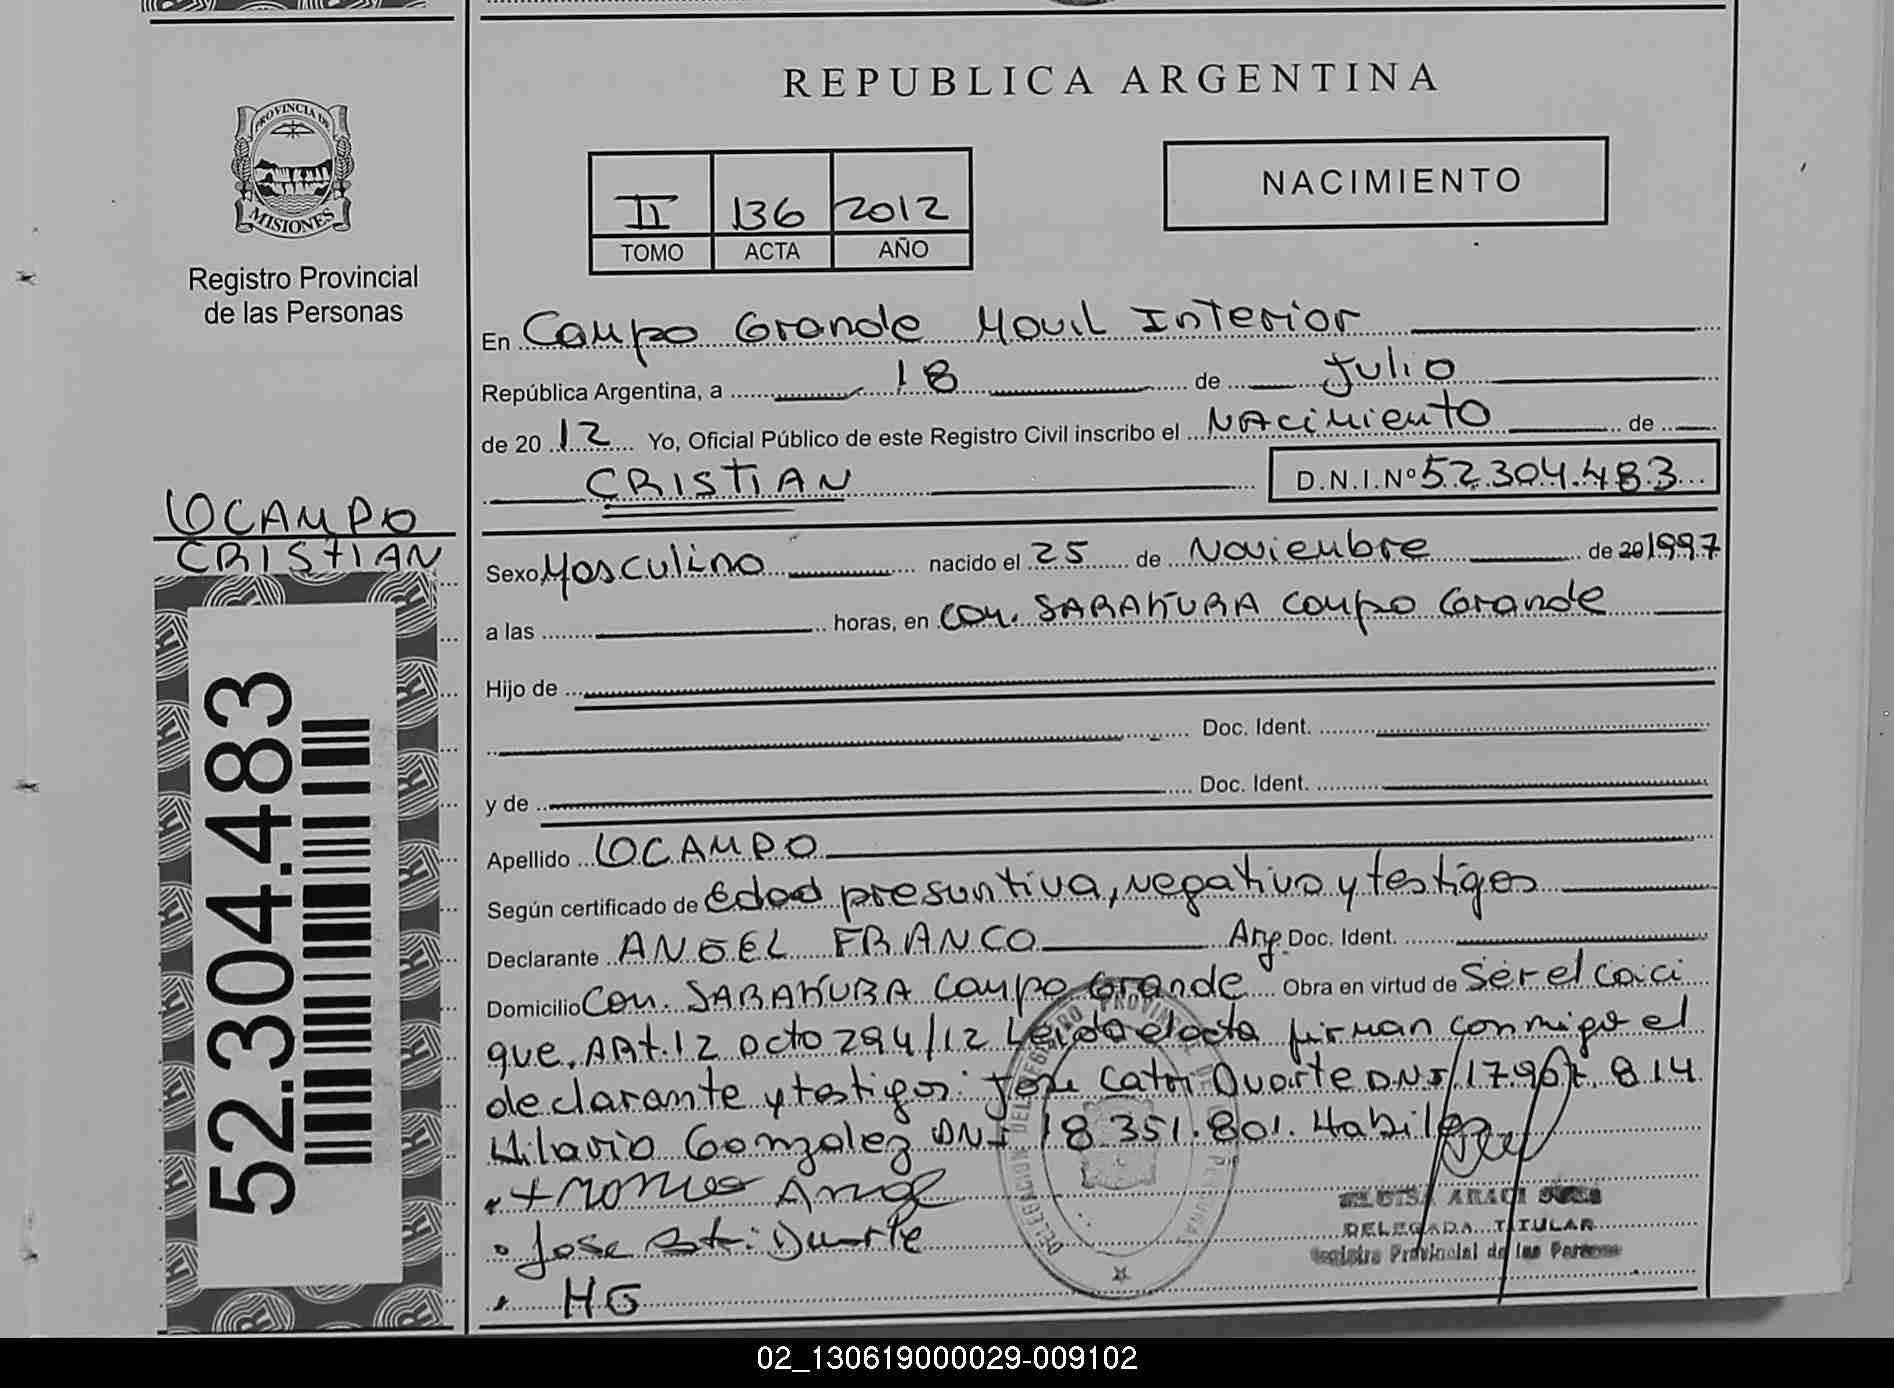 REPUBLICA ARGENTINA
PROVINCIA DE
MISIONES
Registro Provincial
de las Personas
II 136 2012
TOMO ACTA AÑO
NACIMIENTO
En Campo Grande Movil Interior
República Argentina, a 18 de Julio
de 20 12 Yo, Oficial Público de este Registro Civil inscribo el Nacimiento de
CRISTIAN D.N.I.Nº 52.304.483
OCAMPO
CRISTIAN
52.304.483
Sexo Masculino nacido el 25 de Noviembre de 20 1997
a las horas, en Com. SARAKURA Campo Grande
Hijo de
Doc. Ident.
y de Doc. Ident.
Apellido OCAMPO
Según certificado de Edad presuntiva, negativo y testigos
Declarante ANGEL FRANCO Arg. Doc. Ident.
Domicilio Com. SARAKURA Campo Grande Obra en virtud de Ser el Caci
que. Art. 12 Dcto 294/12 Leida el acta firman conmigo el
declarante y testigos: Jose Duarte DNI 17.967.814
Hilario Gonzalez DNI 18.351.801. Habiles
Jose Duarte
HG
DELEGADA TITULAR
Registro Provincial de las Personas
02_130619000029-009102